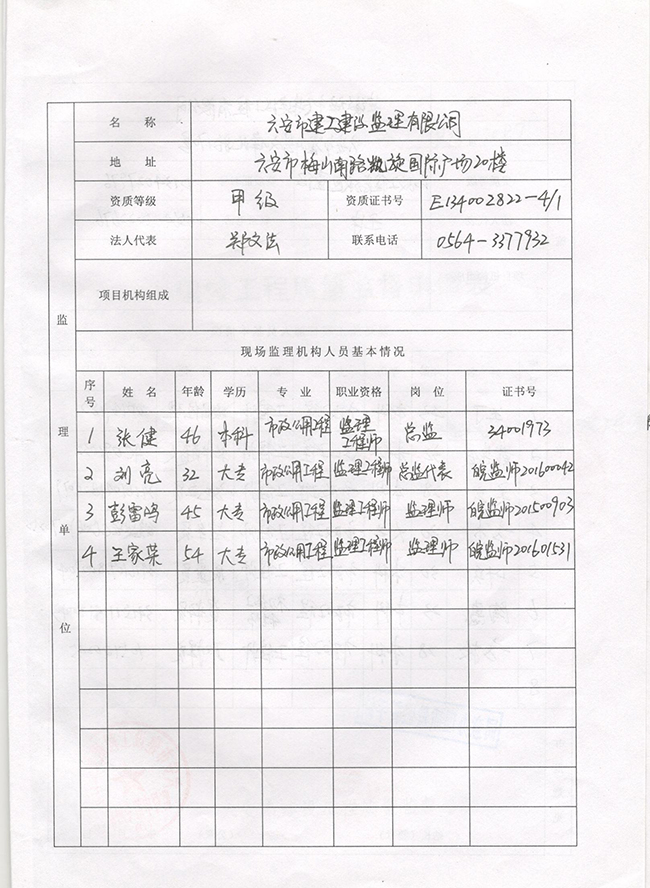 名 称 六安市建工建设监理有限公司
地 址 六安市梅山南路凯旋国际广场20楼
资质等级 甲级 资质证书号 E134002822-4/1
法人代表 郑文法 联系电话 0564-3377932
项目机构组成
监理单位
现场监理机构人员基本情况
序号 姓名 年龄 学历 专业 职业资格 岗位 证书号
1 张健 46 本科 市政公用工程 监理工程师 总监 34001973
2 刘亮 32 大专 市政公用工程 监理工程师 总监代表 皖监师201600042
3 彭雷鸣 45 大专 市政公用工程 监理工程师 监理师 皖监师201500903
4 王家荣 54 大专 市政公用工程 监理工程师 监理师 皖监师201601531